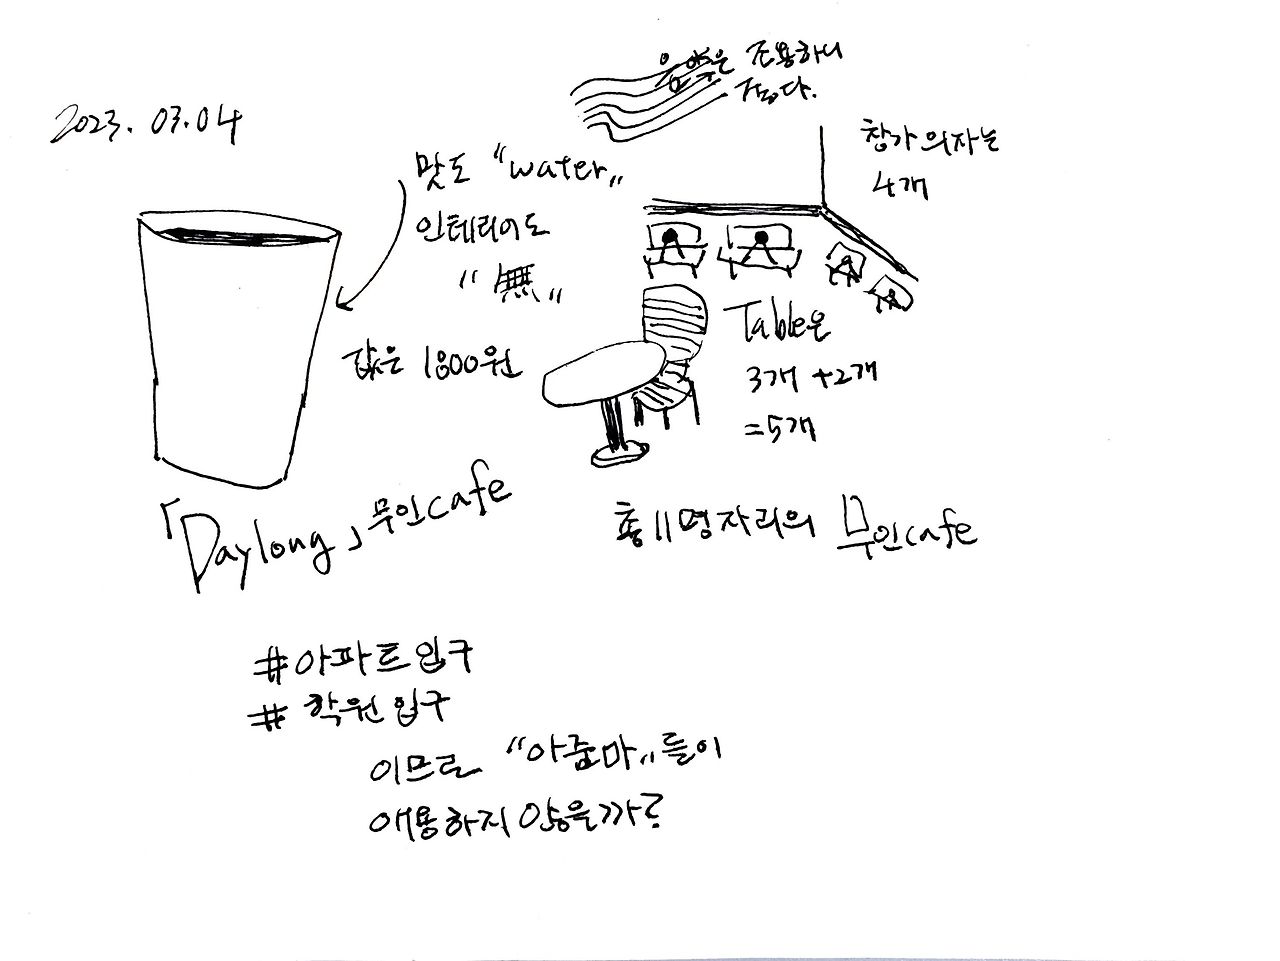 2023. 03.04
음악은 조용하니
좋다.
창가의자는
4개
맛도 "water"
인테리어도
"無"
값은 1800원
Table은
3개 +2개
=5개
「Daylong」무인cafe
총11명자리의 무인cafe
#아파트입구
#학원입구
이므로 "아줌마"들이
애용하지 않을까?